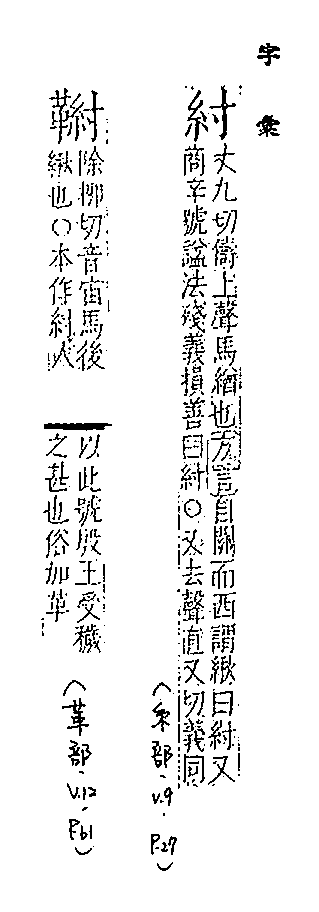 字彙
紂
丈九切儔上聲馬緧也方言自關而西謂緧曰紂又
商辛號謚法殘義損善曰紂○又去聲直又切義同
(糸部.V.9.P.27)
𩎌
除柳切音宙馬後
緧也○本作紂人
以此號殷王受穢
之甚也俗加革
(革部.V.12.P.61)